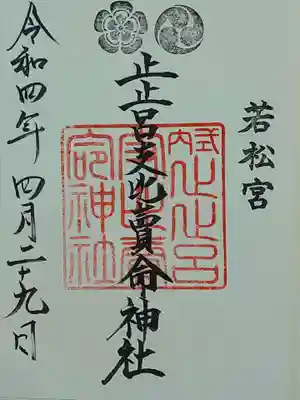 若松宮
止止呂支比賣命神社
式内止止呂
命神社
令和四年 四月二十九日